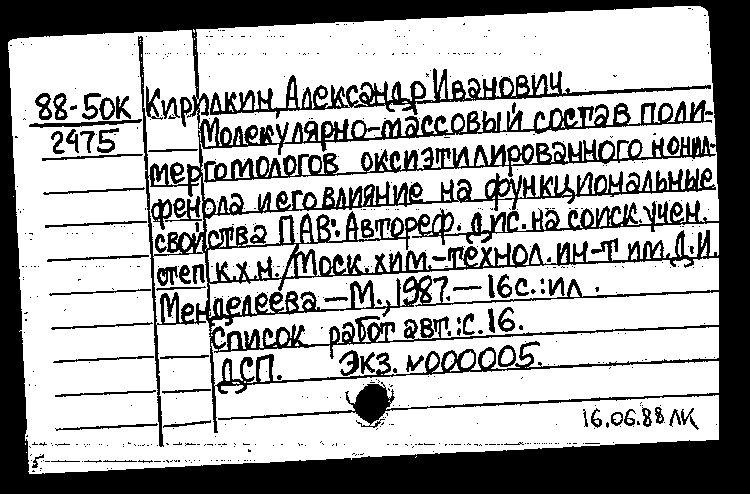 88-50К Кирилкин, Александр Иванович.
2475 Молекулярно-массовый состав поли-
мергомологов оксиэтилированного нонил-
фенола и его влияние на функциональные
свойства ПАВ: Автореф. дис. на соиск. учен.
степ. к.х.н. / Моск. хим.-технол. ин-т им. Д.И.
Менделеева. — М., 1987. — 16 с. : ил.
Список работ авт.: с. 16.
ДСП. Экз. №000005.
16.06.88 ЛК